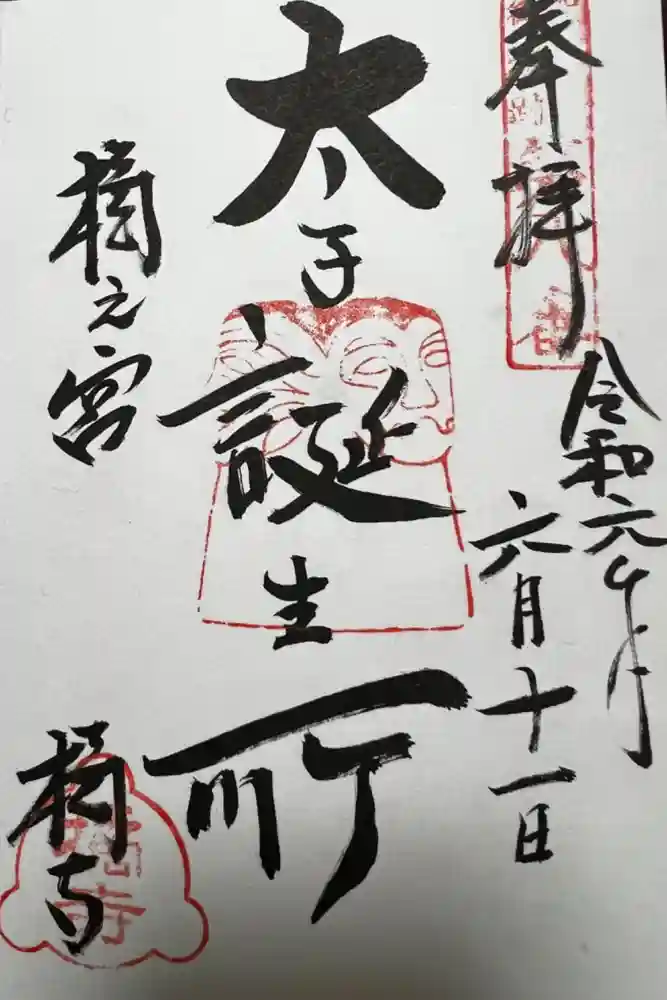 奉拝
令和六年
六月十一日
太子誕生所
橘之宮
橘寺